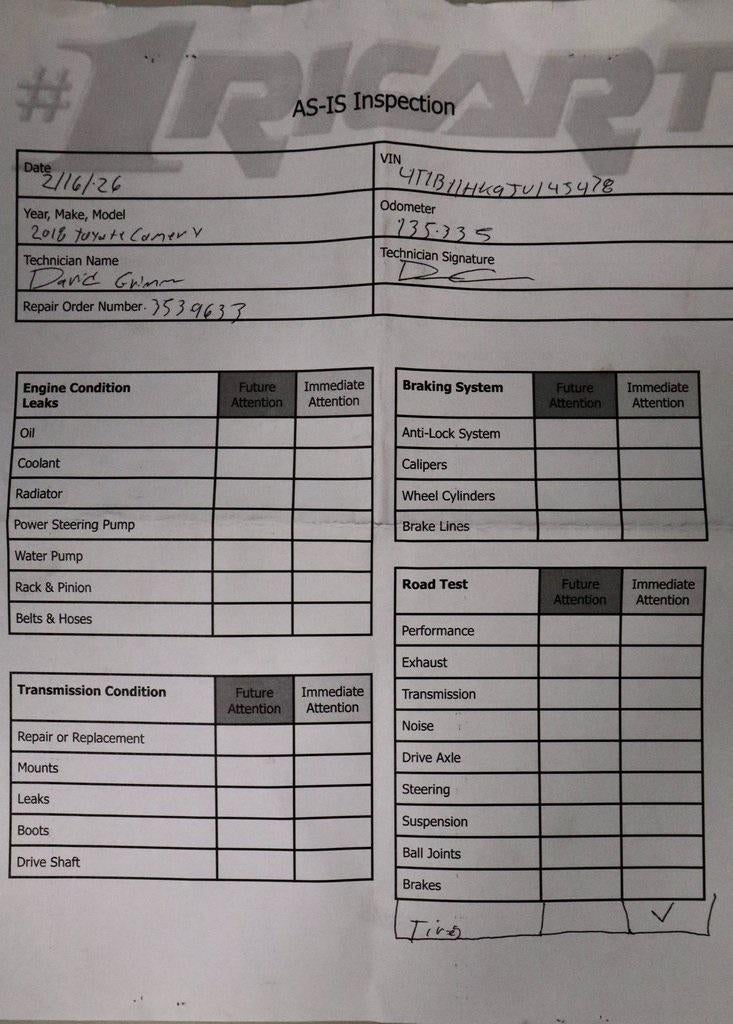 #1 RICART
AS-IS Inspection
Date 2/16/26
VIN 4T1B11HK9JU145478
Year, Make, Model 2018 Toyota Camery
Odometer 135.335
Technician Name David Grimm
Technician Signature
Repair Order Number 3539633
Engine Condition Leaks
Future Attention
Immediate Attention
Oil
Coolant
Radiator
Power Steering Pump
Water Pump
Rack & Pinion
Belts & Hoses
Transmission Condition
Future Attention
Immediate Attention
Repair or Replacement
Mounts
Leaks
Boots
Drive Shaft
Braking System
Future Attention
Immediate Attention
Anti-Lock System
Calipers
Wheel Cylinders
Brake Lines
Road Test
Future Attention
Immediate Attention
Performance
Exhaust
Transmission
Noise
Drive Axle
Steering
Suspension
Ball Joints
Brakes
Tires ✓